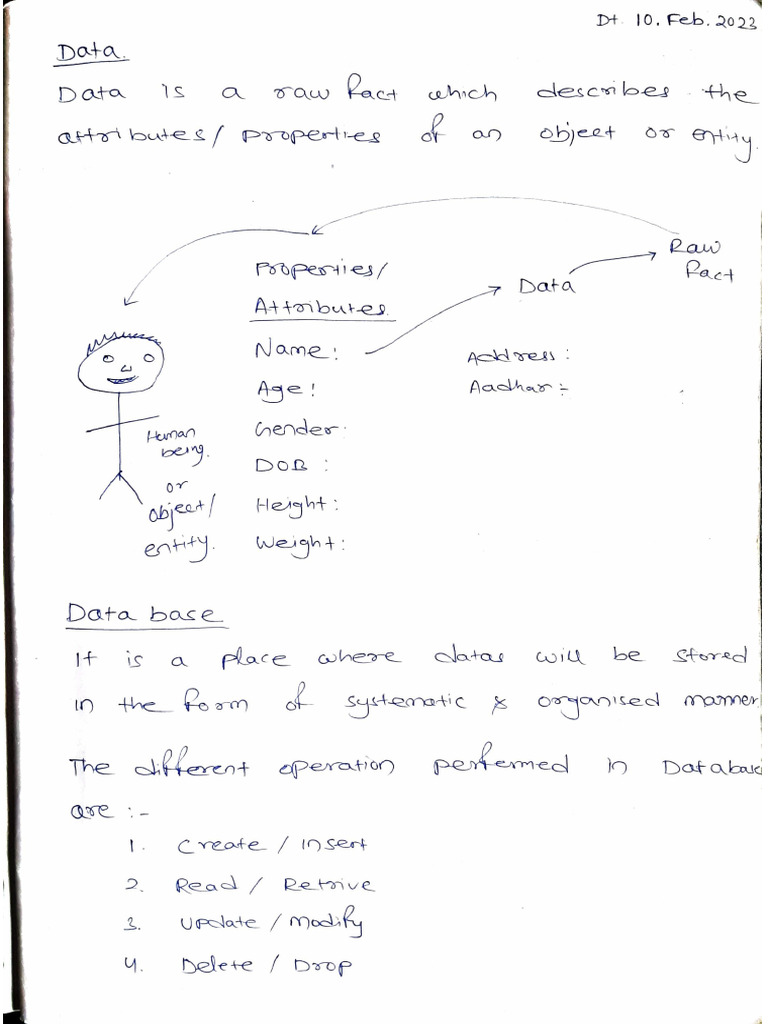 Dt. 10. Feb. 2023
Data.
Data is a raw fact which describes the
attributes/ properties of an object or entity.
Raw
fact
Properties/
Attributes
Data
Name:
Address:
Age:
Aadhar:-
Gender:
Human
being.
DOB :
or
object/
Height:
entity.
Weight:
Data base
It is a place where datas will be stored
in the form of systematic & organised manner
The different operation performed in Database
are :-
1. Create / Insert
2. Read / Retrive
3. Update / Modify
4. Delete / Drop